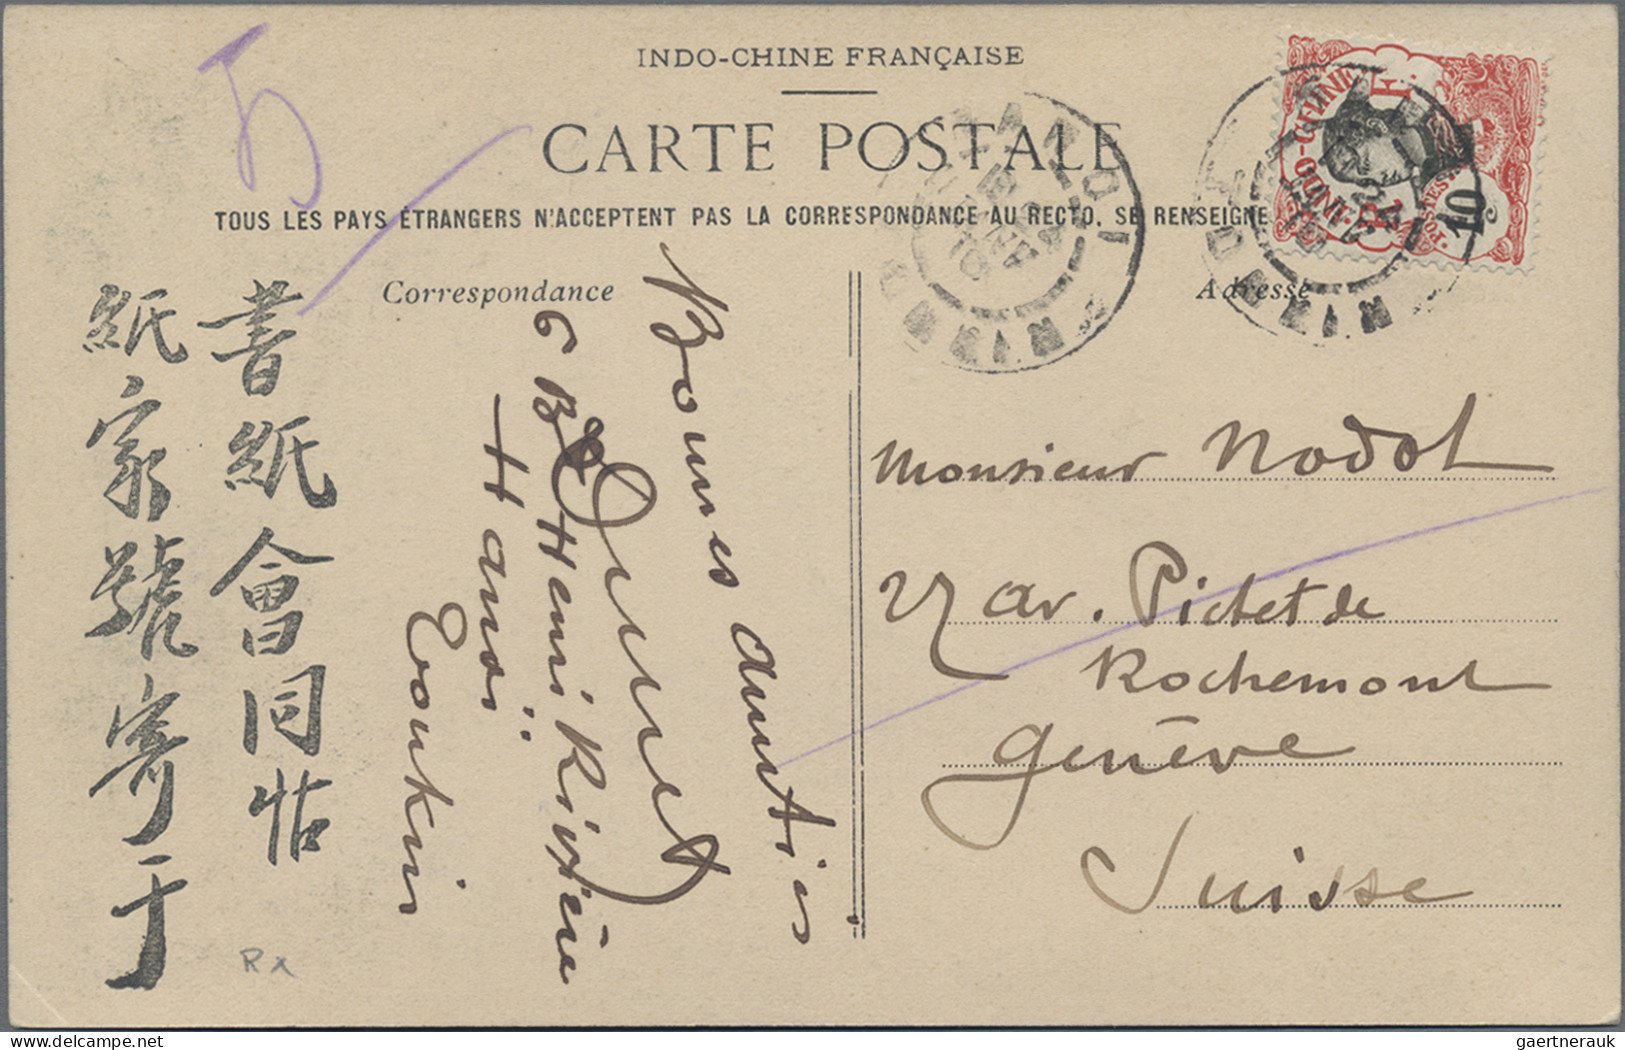 INDO-CHINE FRANÇAISE
CARTE POSTALE
TOUS LES PAYS ÉTRANGERS N'ACCEPTENT PAS LA CORRESPONDANCE AU RECTO. SE RENSEIGNE
Correspondance
Adresse
INDO-CHINE
POSTES
10
HANOI
書紙會同帖
紙家號寄于
Bonnes amitiés
6 Bd Henri Rivière
Hanoi
Tonkin
Monsieur Nodot
27 av. Pictet de
Rochemont
Genève
Suisse
Rx
gaertnerauk